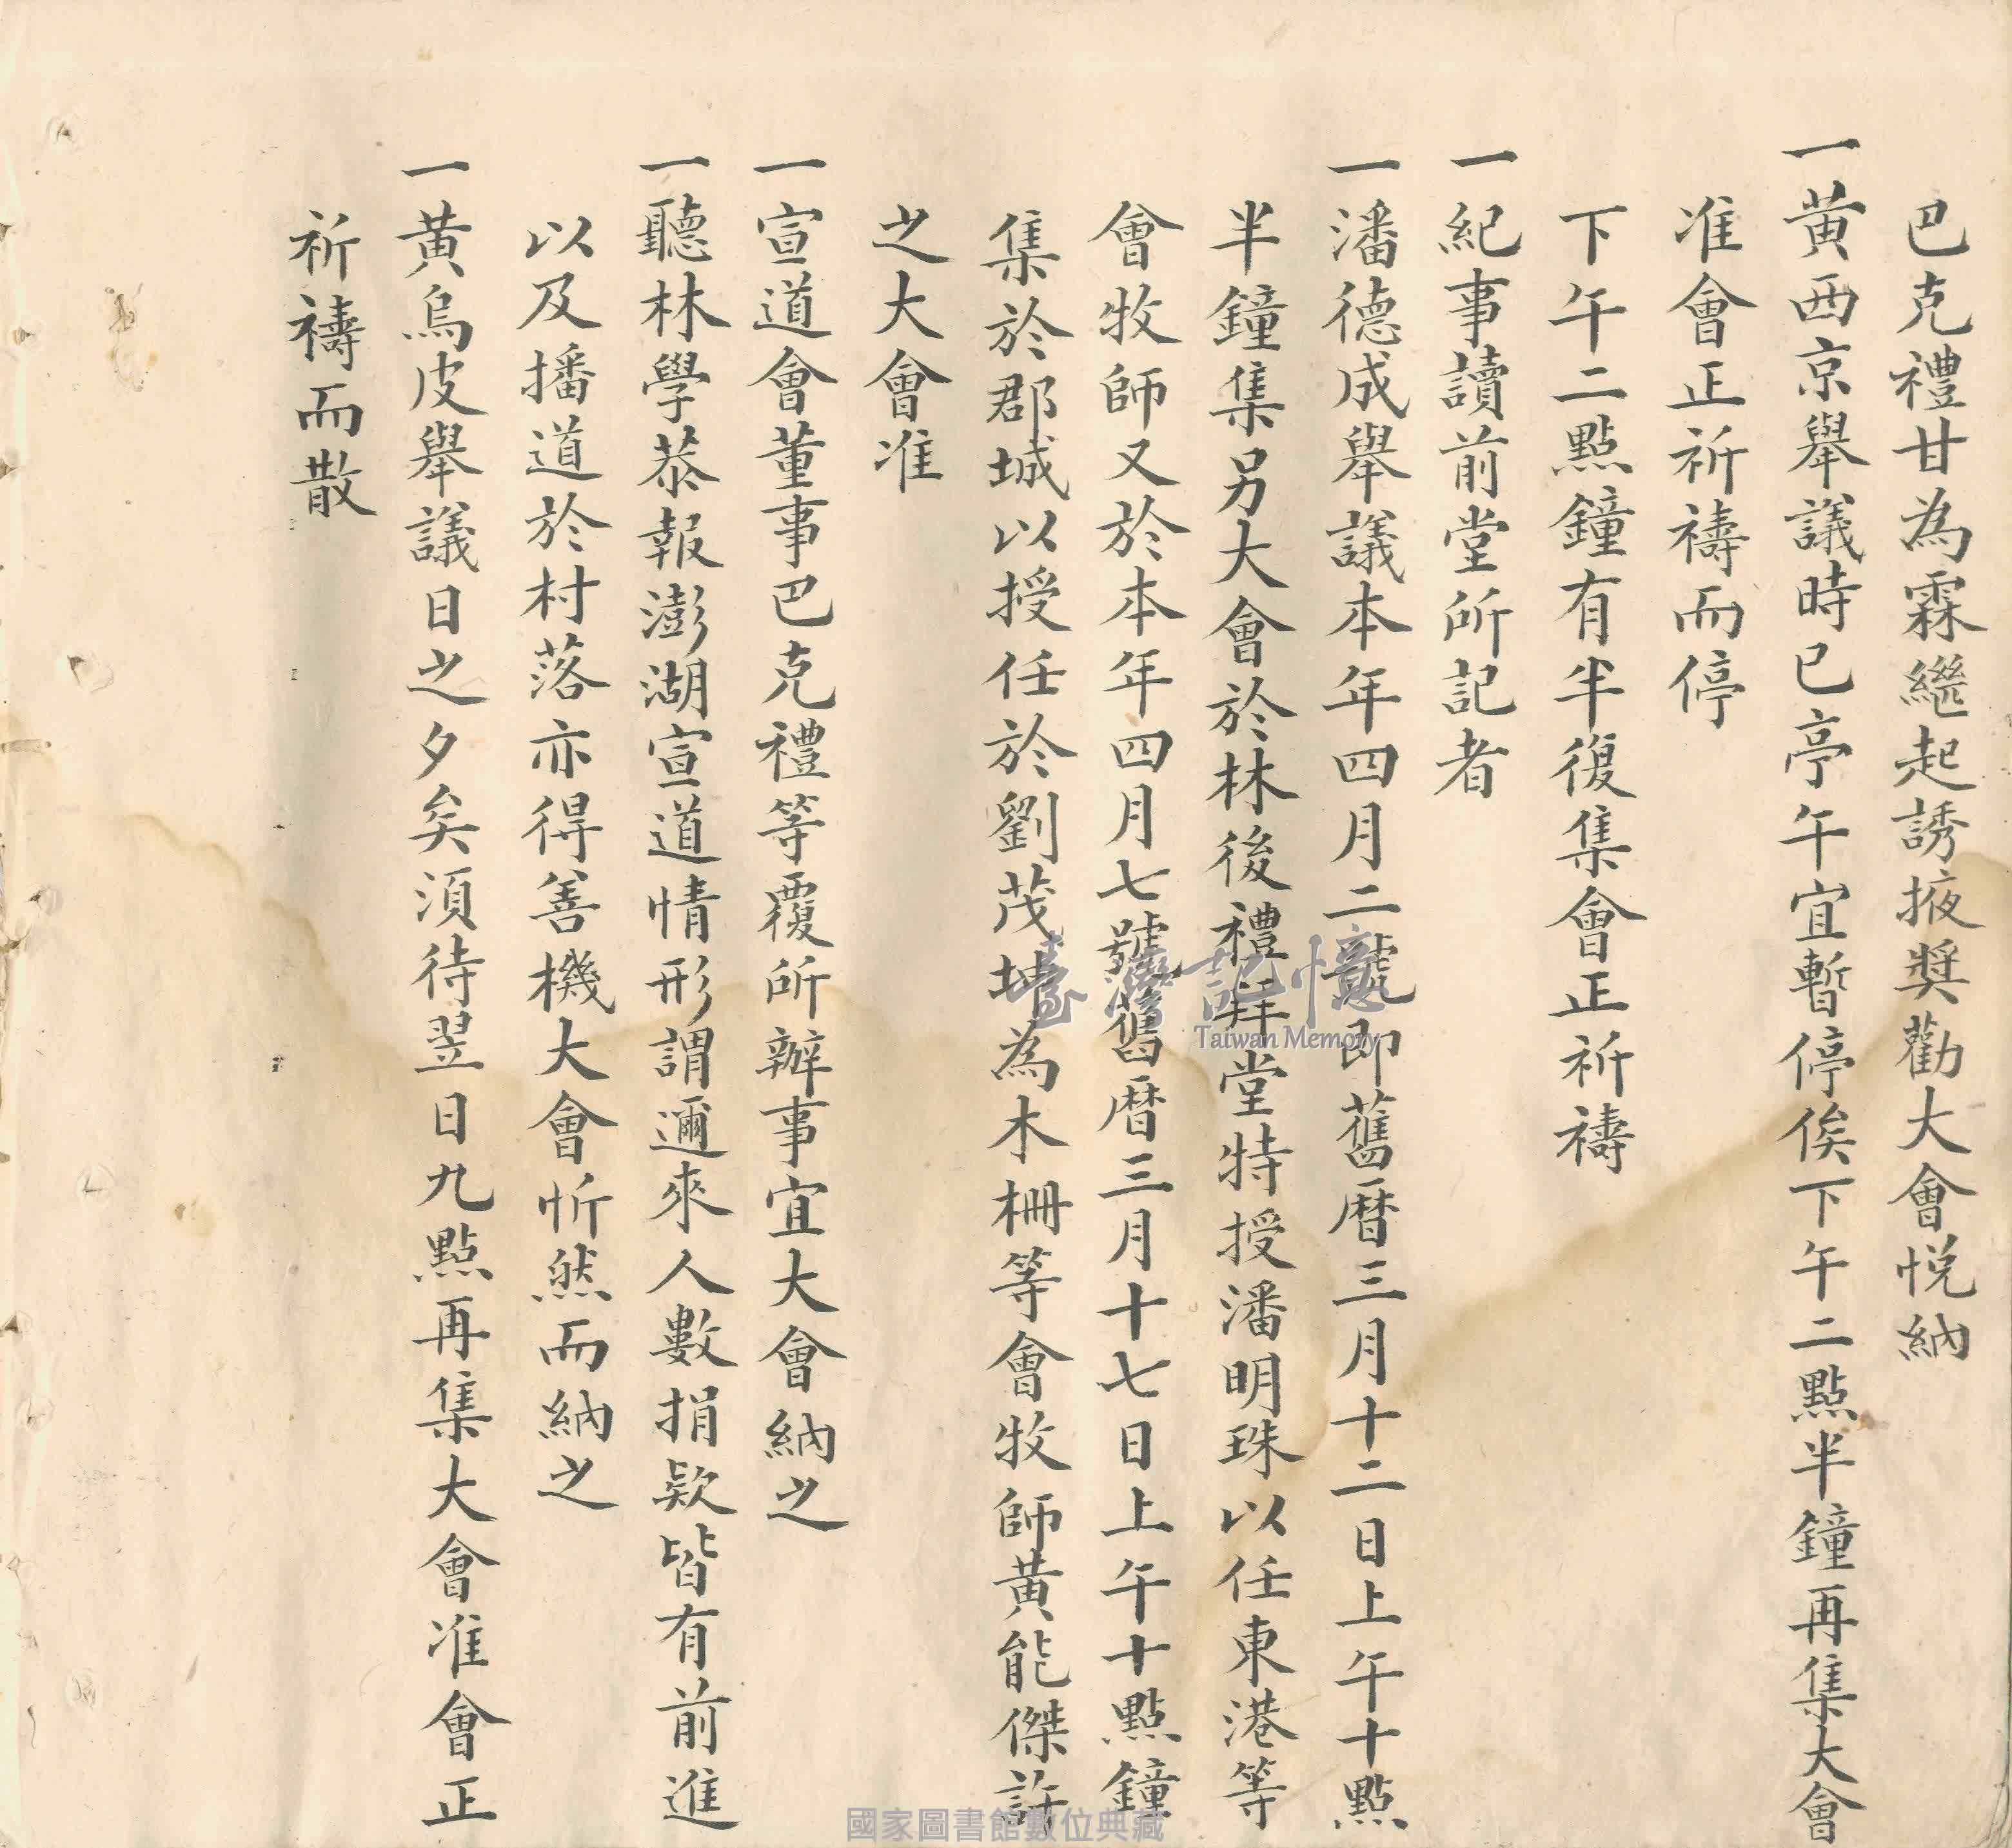 巴克禮甘為霖繼起誘掖獎勸大會悅納
一黃西京舉議時已亭午宜暫停俟下午二點半鐘再集大會
准會正祈禱而停
下午二點鐘有半復集會正祈禱
一紀事讀前堂所記者
一潘德成舉議本年四月二號即舊曆三月十二日上午十點
半鐘集另大會於林後禮拜堂特授潘明珠以任東港等
會牧師又於本年四月七號舊曆三月十七日上午十點鐘
集於郡城以授任於劉茂坤為木柵等會牧師黃能傑訴
之大會准
一宣道會董事巴克禮等覆所辦事宜大會納之
一聽林學恭報澎湖宣道情形謂邇來人數捐欵皆有前進
以及播道於村落亦得善機大會忻然而納之
一黃烏皮舉議日之夕矣須待翌日九點再集大會准會正
祈禱而散
臺灣記憶
Taiwan Memory
國家圖書館數位典藏